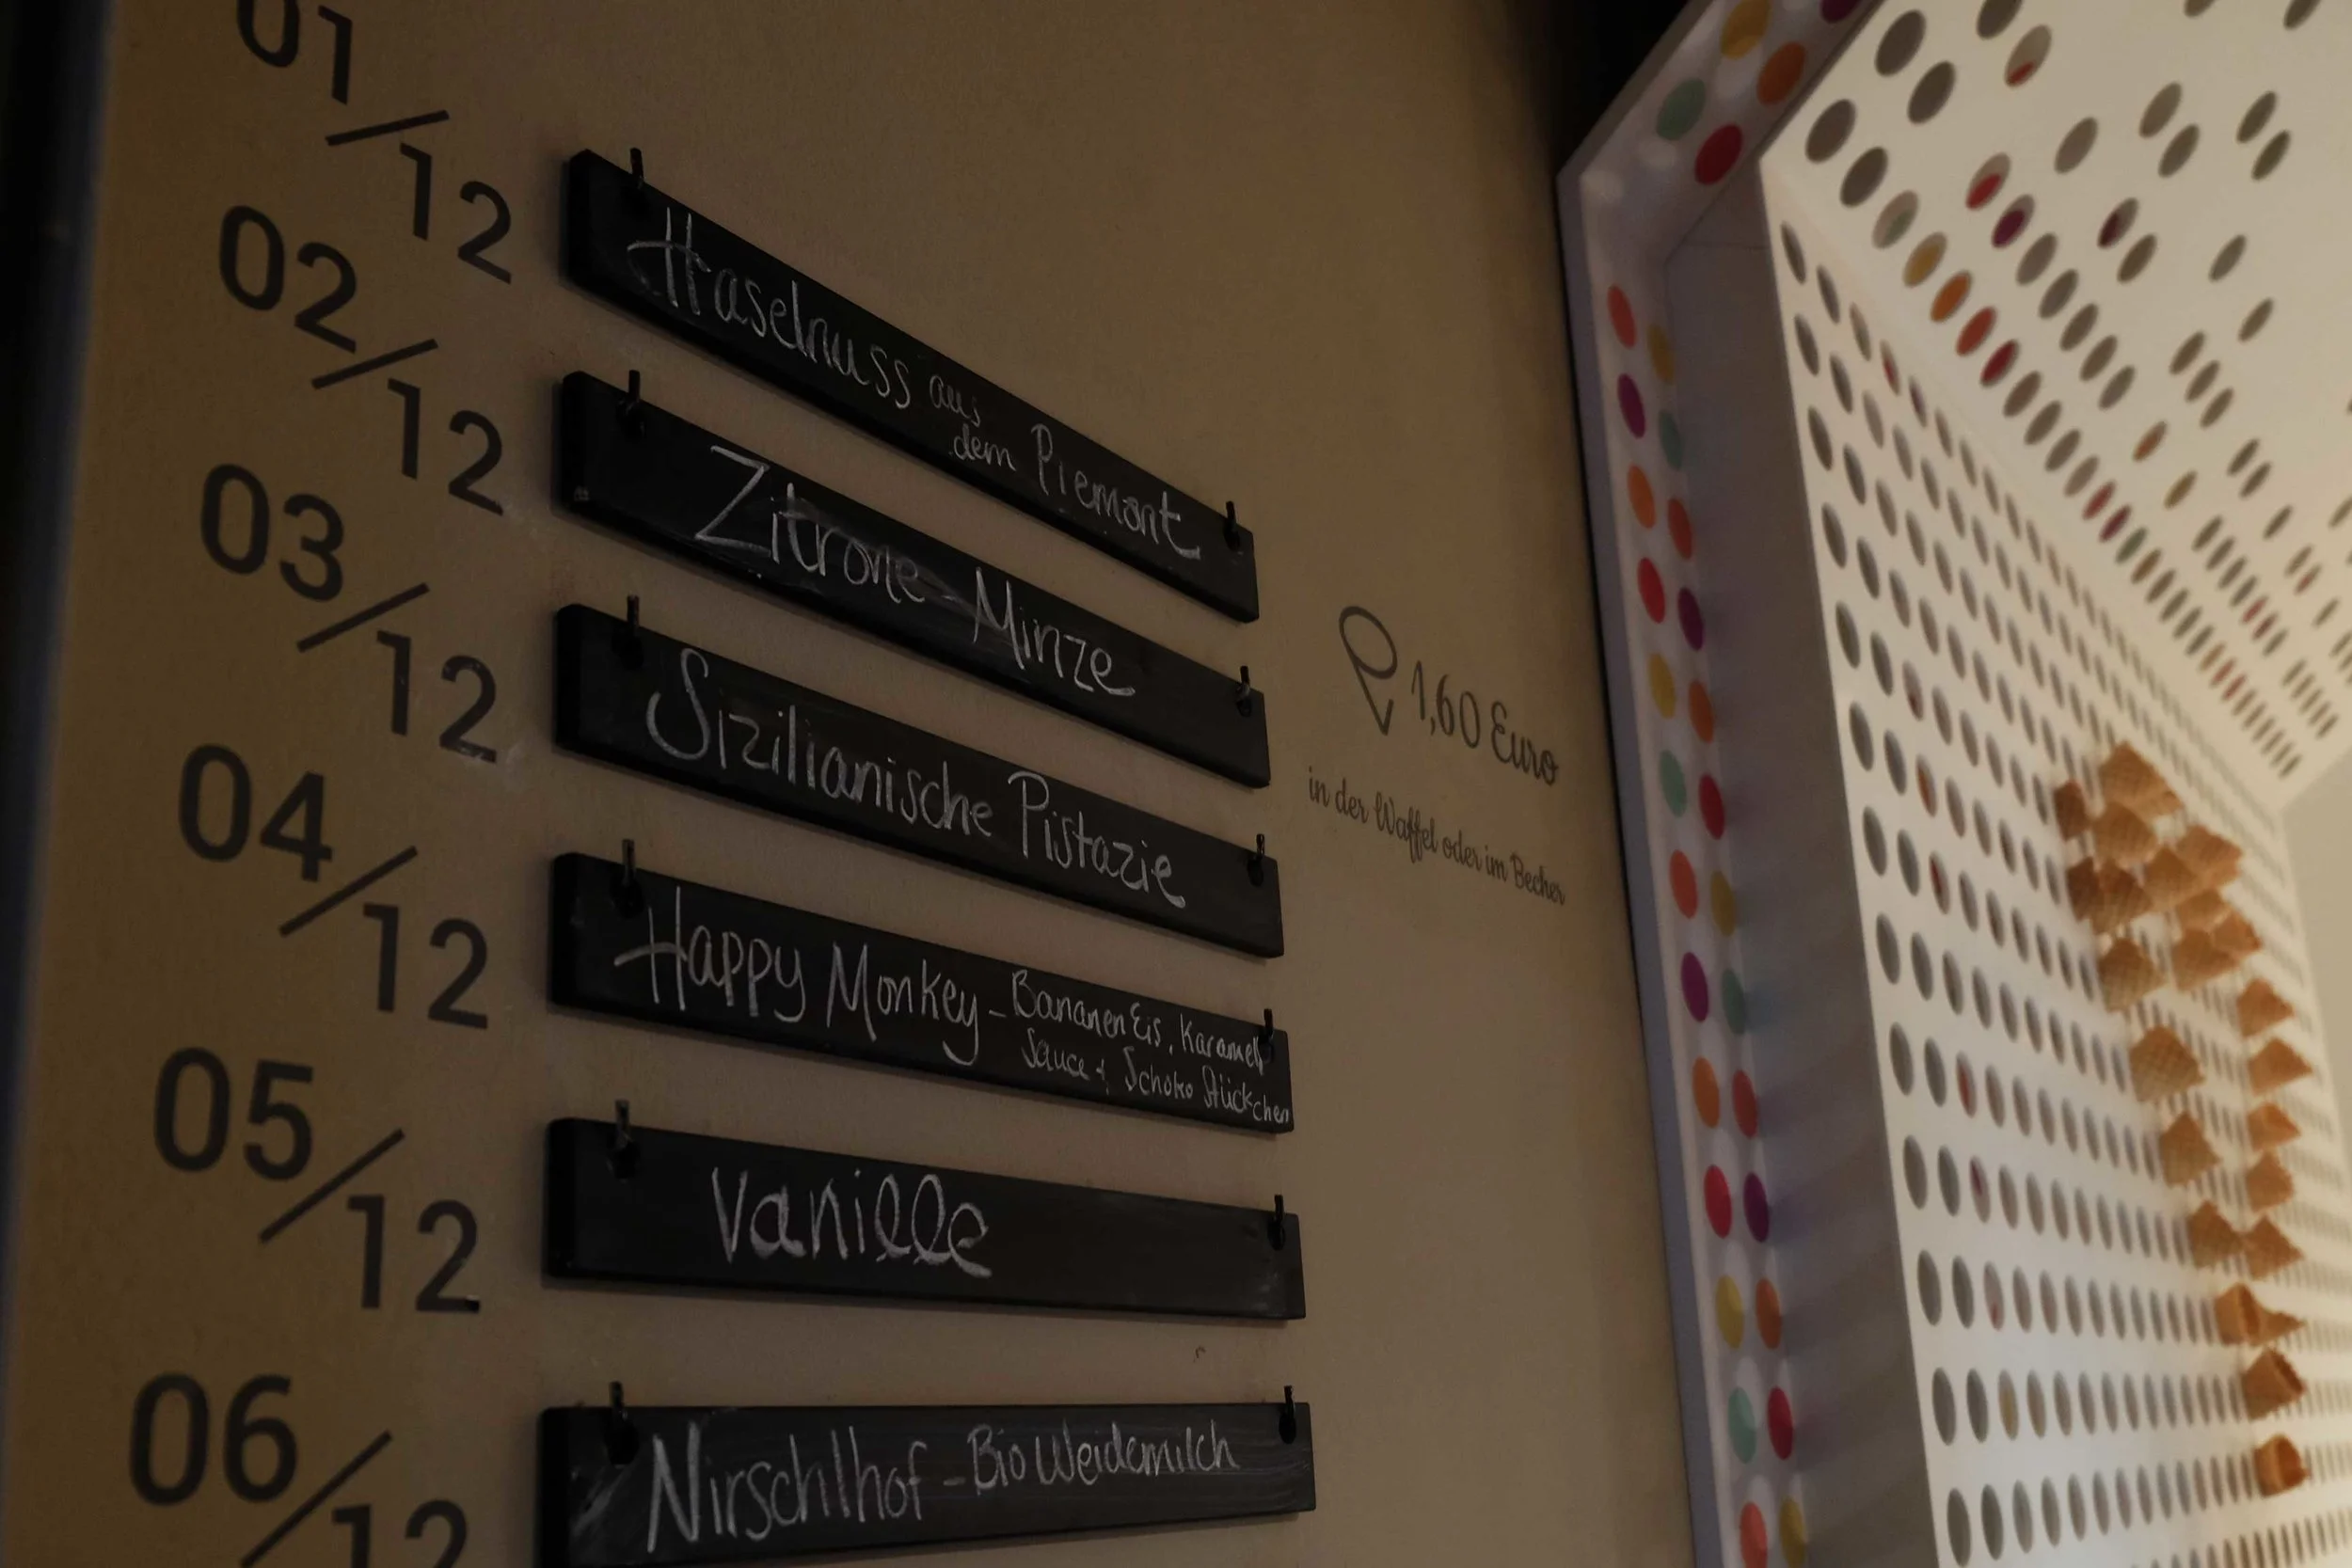 01/12
Haselnuss aus
dem Piemont
02/12
Zitrone-Minze
03/12
Sizilianische Pistazie
04/12
Happy Monkey - Bananen Eis, Karamell
Sauce + Schoko Stückchen
05/12
Vanille
06/12
Nirschlhof - Bio Weidemilch
1,60 Euro
in der Waffel oder im Becher